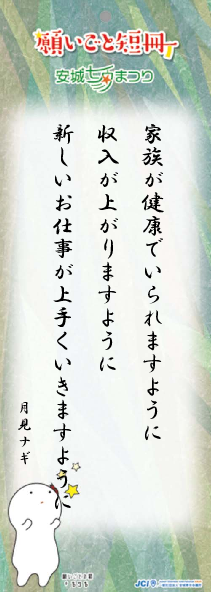 願いごと短冊
安城七夕まつり
家族が健康でいられますように
収入が上がりますように
新しいお仕事が上手くいきますように
月見ナギ
JCI